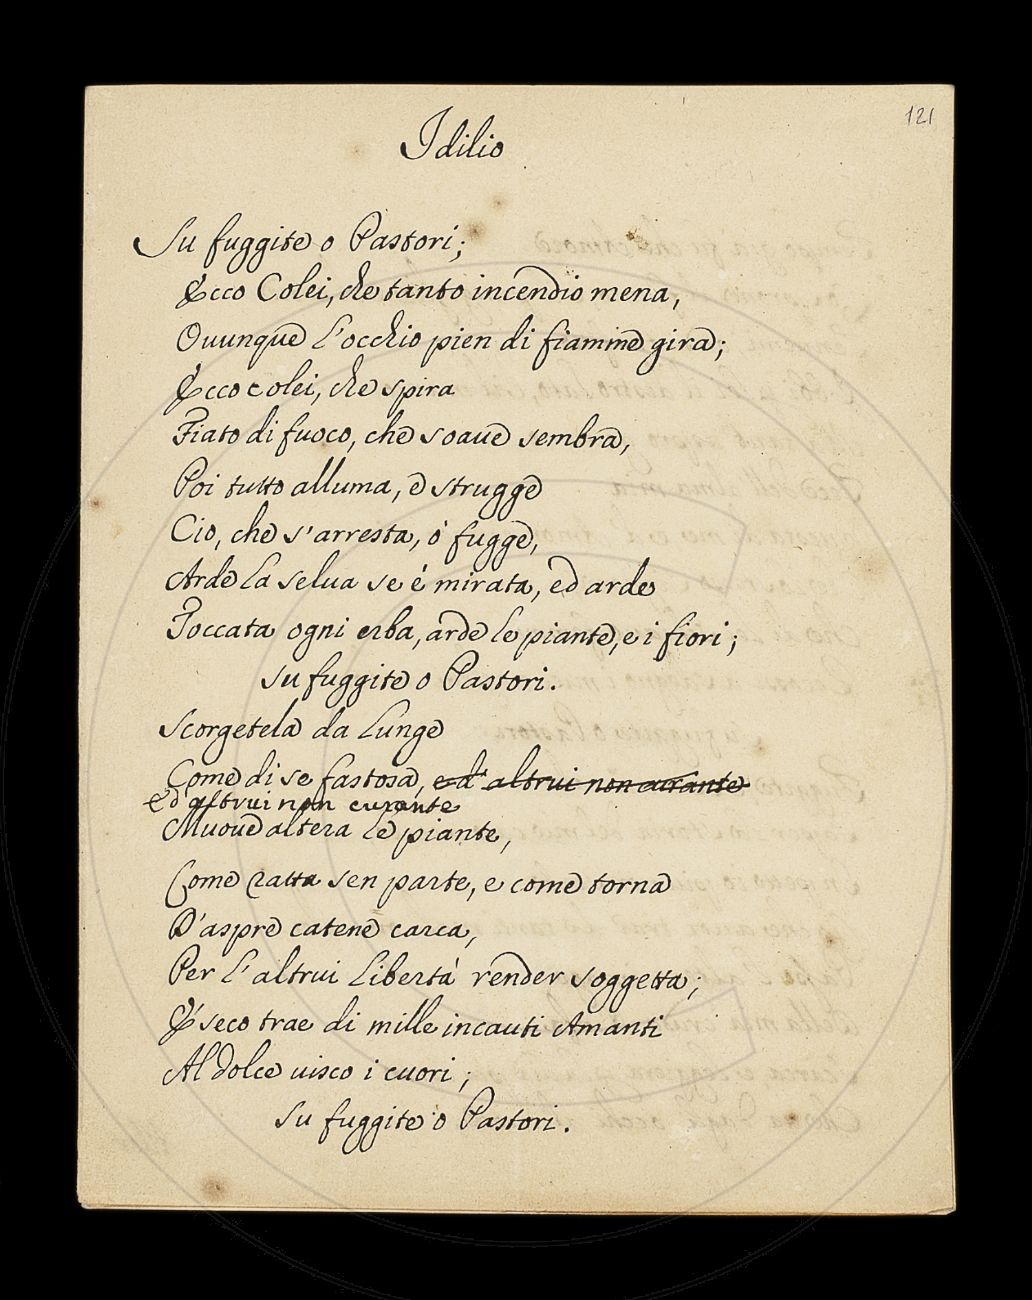 121
Idilio
Su fuggite o Pastori;
Ecco Colei, che tanto incendio mena,
Ouunque l'occhio pien di fiamme gira;
Ecco colei, che spira
Fiato di fuoco, che soaue sembra,
Poi tutto alluma, e strugge
Cio, che s'arresta, ó fugge,
Arde la selua se é mirata, ed arde
Toccata ogni erba, arde le piante, e i fiori;
su fuggite o Pastori.
Scorgetela da lunge
Come di se fastosa, e d'altrui non curante
e d'altrui non curante
Muoue altera le piante,
Come ratta sen parte, e come torna
D'aspre catene carca,
Per l'altrui libertá render soggetta;
E seco trae di mille incauti Amanti
Al dolce uisco i cuori;
su fuggite o Pastori.